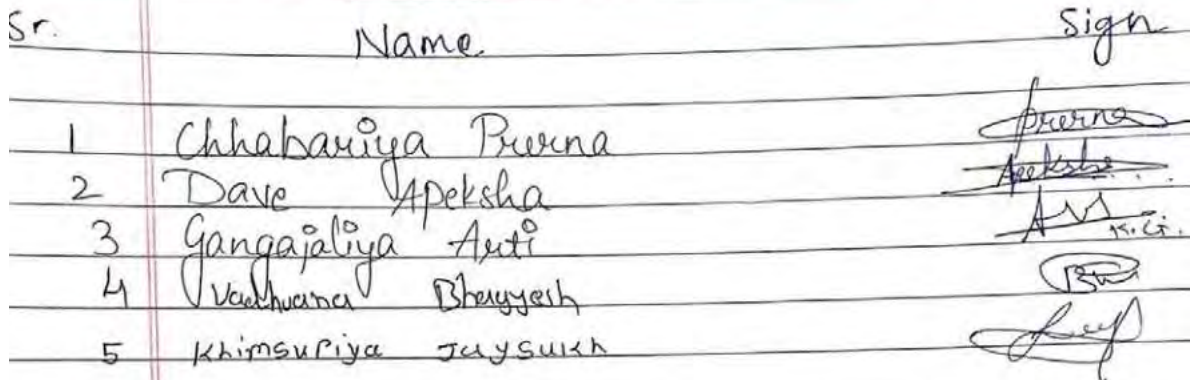 Sr. Name Sign
1 Chhabariya Prerna Prerna
2 Dave Apeksha Apeksha
3 Gangajaliya Arti
4 Vadhvana Bhayyesh
5 Khimsuriya Jaysukh